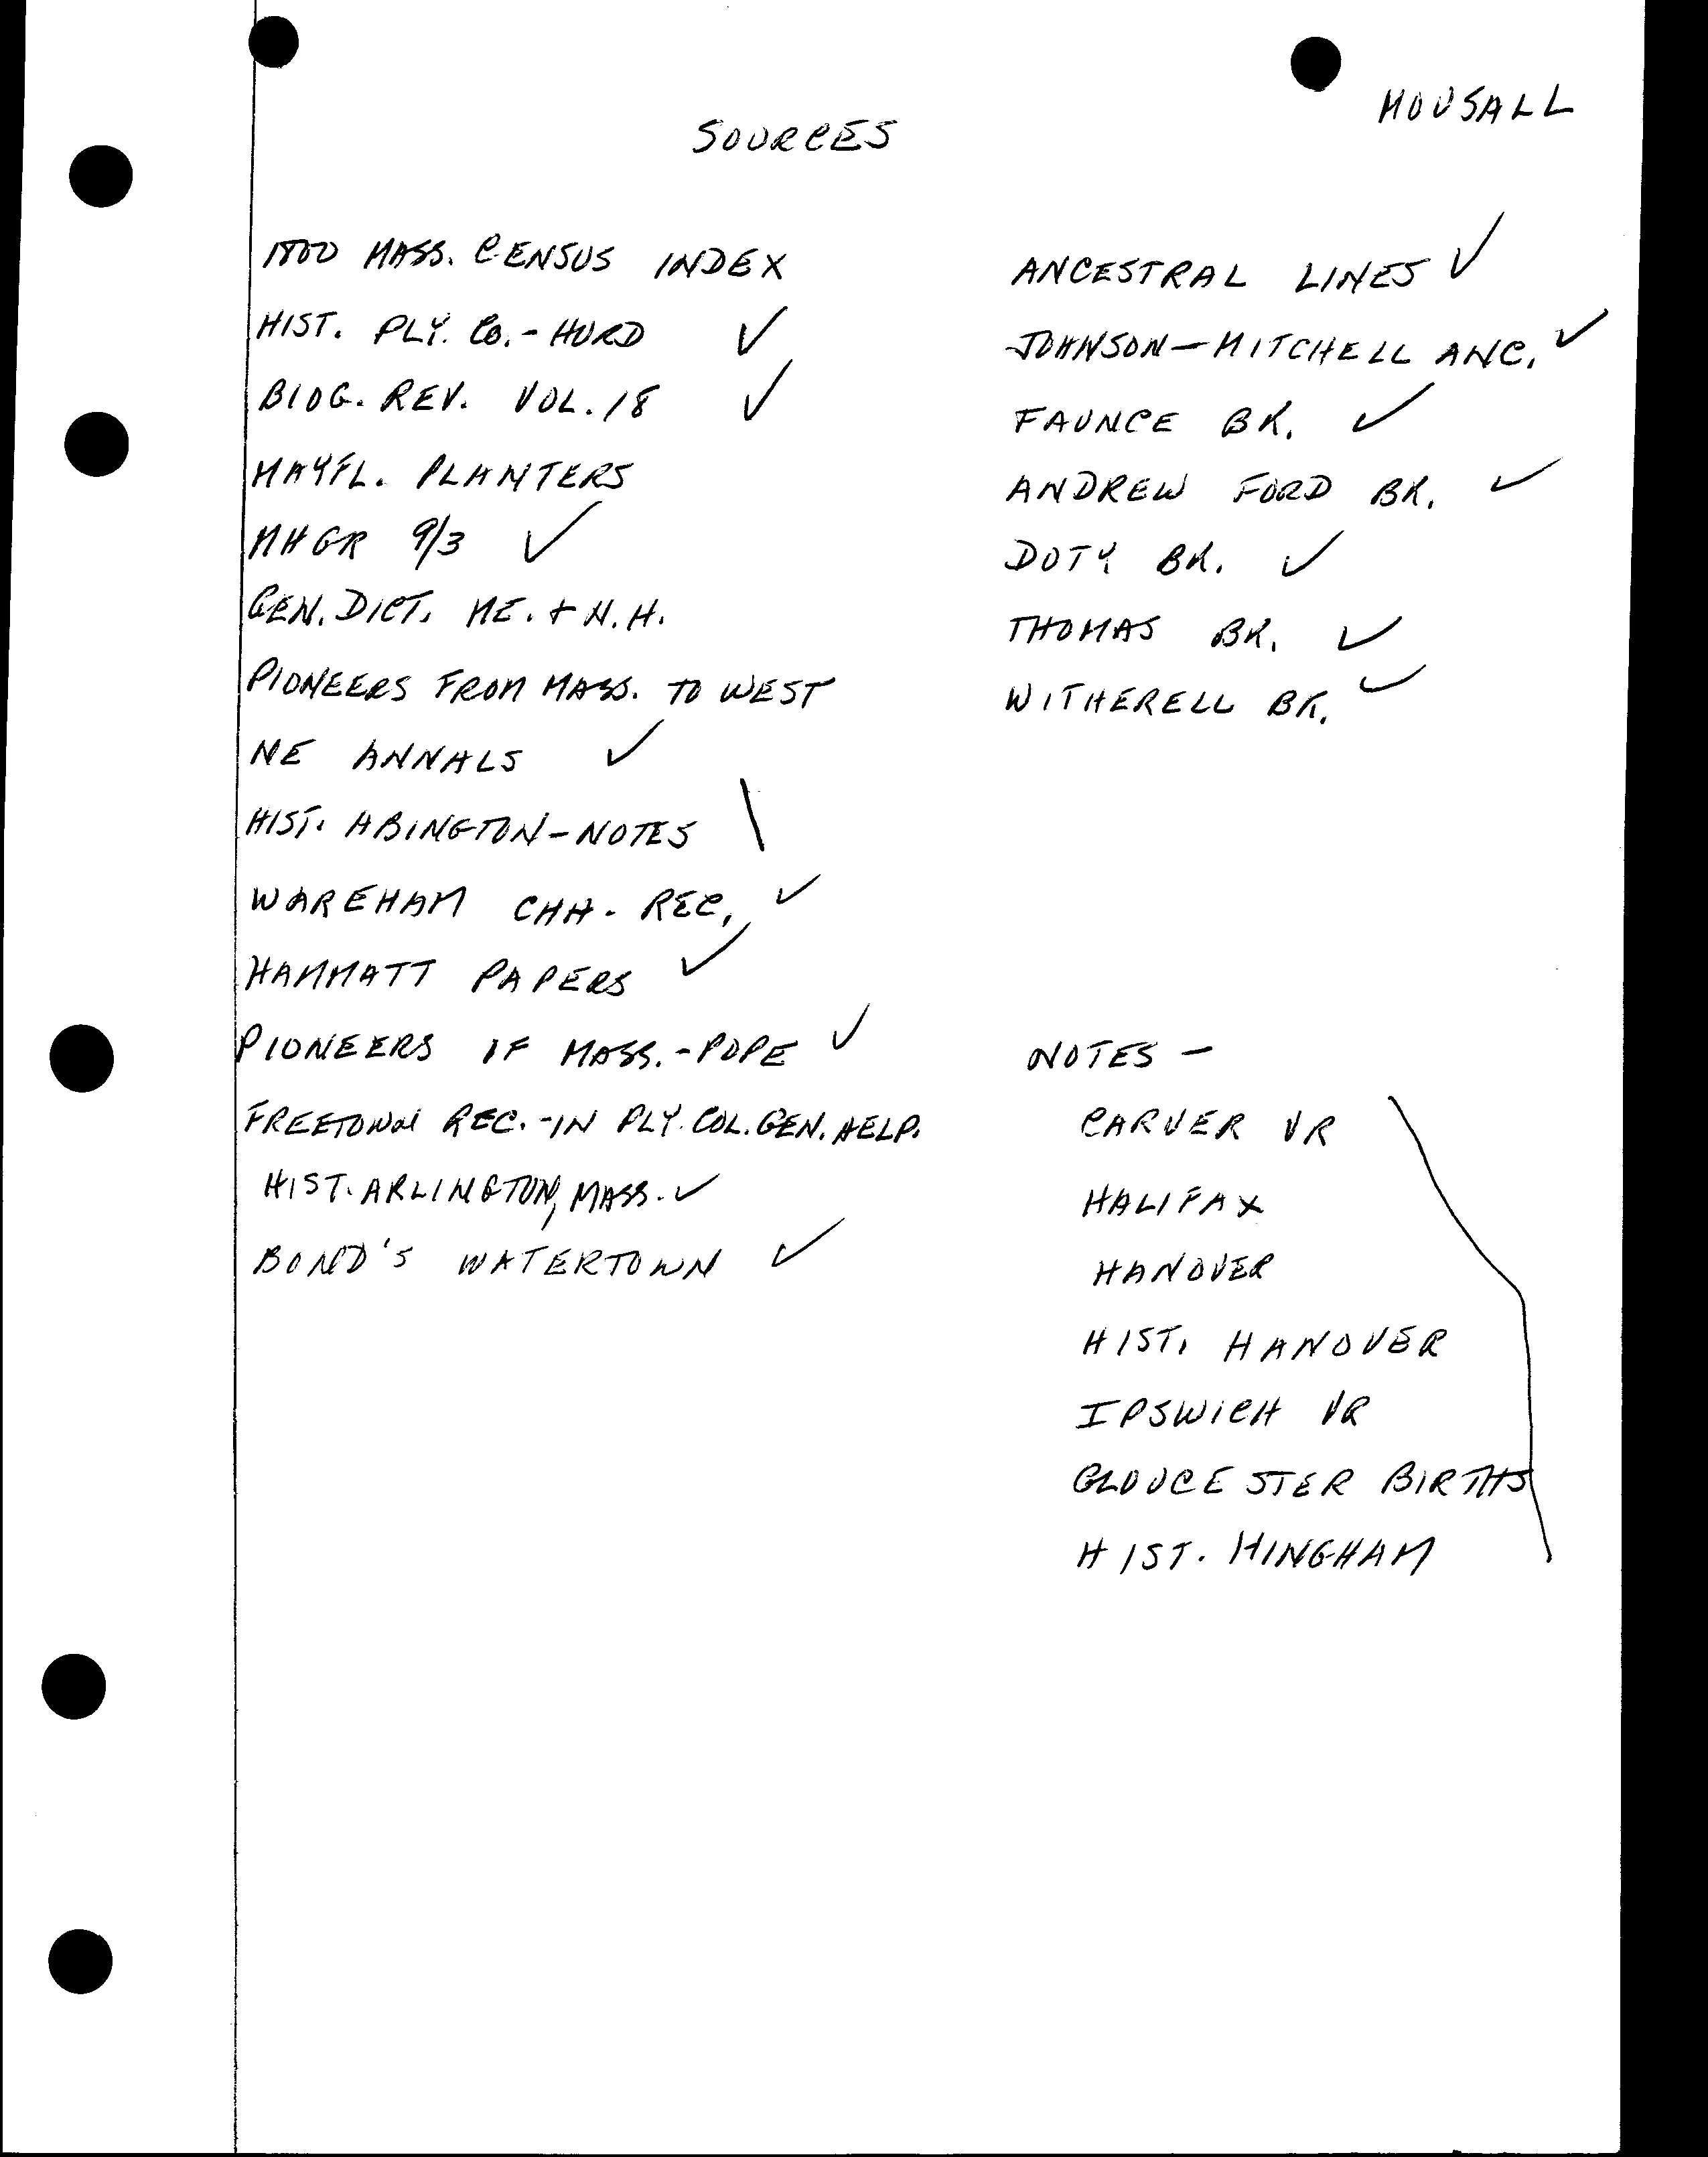 MOUSALL
SOURCES
1800 MASS. CENSUS INDEX
HIST. PLY. CO. - HURD ✓
BIOG. REV. VOL. 18 ✓
MAYFL. PLANTERS
MHGR 9/3 ✓
GEN. DICT. ME. + N.H.
PIONEERS FROM MASS. TO WEST
NE ANNALS ✓
HIST. ABINGTON - NOTES \
WAREHAM CHH. REC. ✓
HAMMATT PAPERS ✓
PIONEERS OF MASS. - POPE ✓
FREETOWN REC. - IN PLY. COL. GEN. HELP.
HIST. ARLINGTON, MASS. ✓
BOND'S WATERTOWN ✓
ANCESTRAL LINES ✓
JOHNSON - MITCHELL ANC. ✓
FAUNCE BK. ✓
ANDREW FORD BK. ✓
DOTY BK. ✓
THOMAS BK. ✓
WITHERELL BK. ✓
NOTES -
CARVER VR
HALIFAX
HANOVER
HIST. HANOVER
IPSWICH VR
GLOUCESTER BIRTHS
HIST. HINGHAM